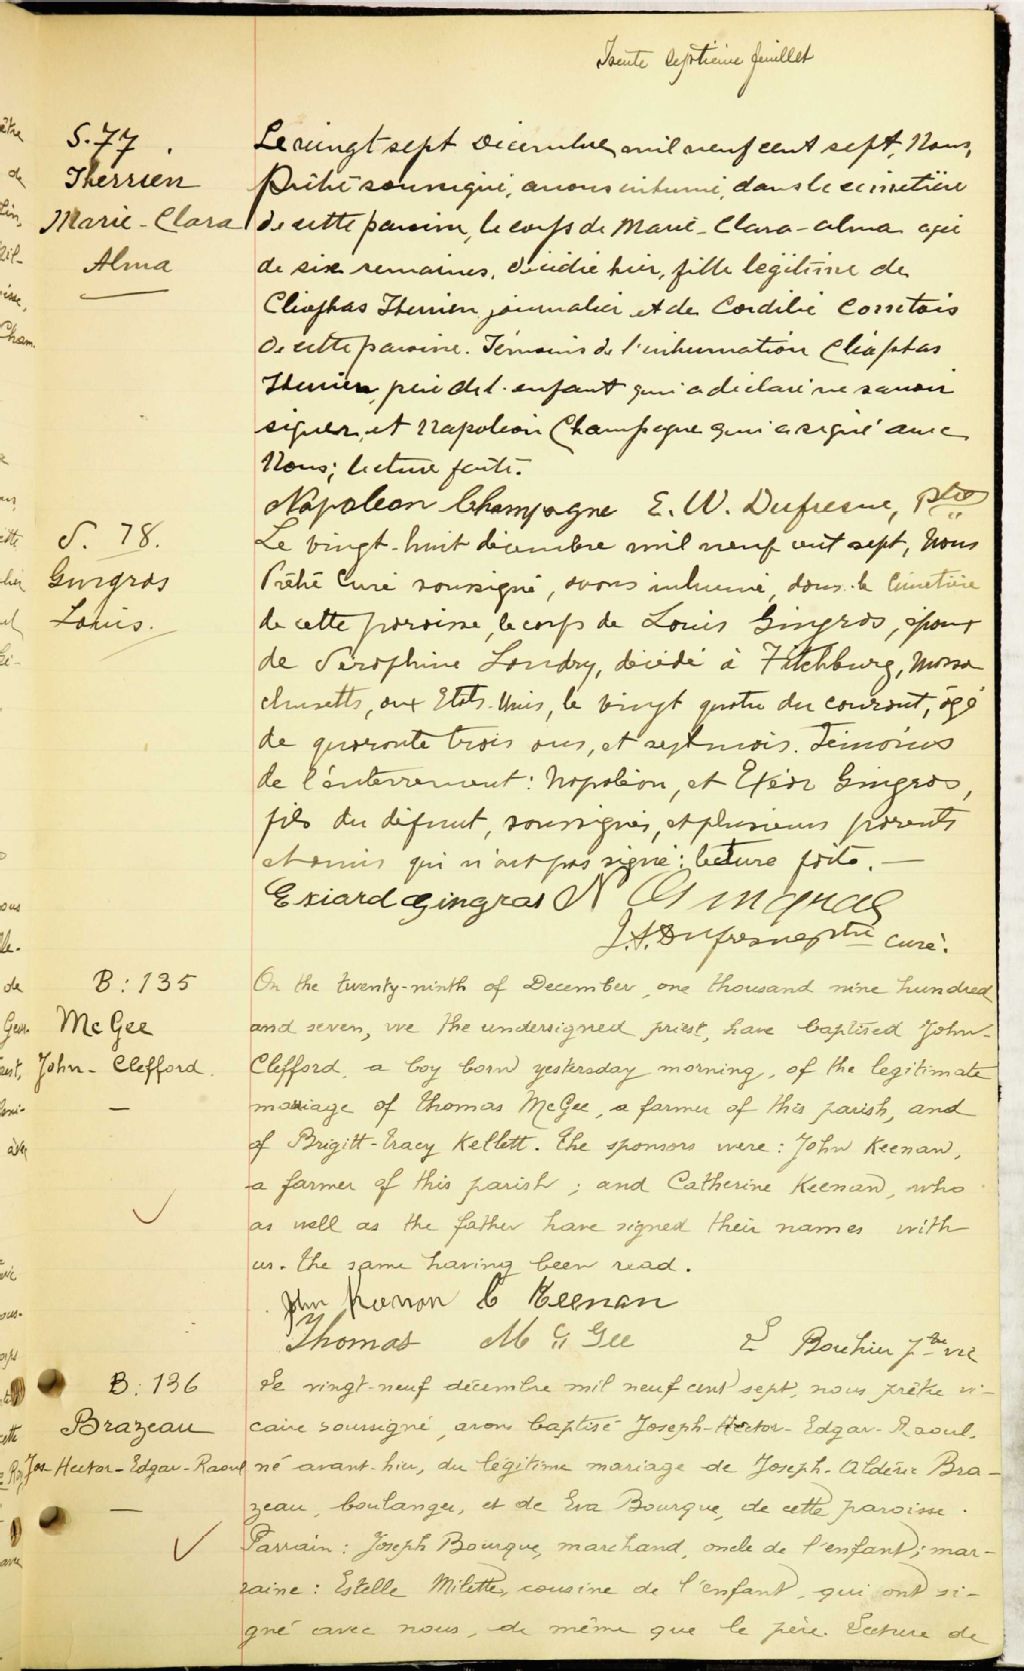 Trente septième feuillet
S. 77.
Therrien
Marie-Clara
Alma
Le vingt sept décembre mil neuf cent sept, Nous,
Prêtre soussigné, avons inhumé, dans le cimetière
de cette paroisse, le corps de Marie-Clara-Alma agée
de six semaines, décédée hier, fille légitime de
Cléophas Therrien journalier et de Cordélie Comtois
de cette paroisse. Témoins de l'inhumation Cléophas
Therrien, père de l'enfant qui a déclaré ne savoir
signer, et Napoléon Champagne qui a signé avec
Nous; lecture faite.
Napoleon Champagne E. W. Dufresne, Ptre
S. 78.
Gingras
Louis.
Le vingt-huit décembre mil neuf cent sept, Nous
Prêtre Curé soussigné, avons inhumé, dans le Cimetière
de cette paroisse, le corps de Louis Gingras, époux
de Séraphine Landry, décédé à Fitchburg, Massa
chusetts, aux Etats-Unis, le vingt quatre du courant, âgé
de quarante trois ans, et sept mois. Témoins
de l'enterrement: Napoléon, et Gingras,
fils du défunt, soussignés, et plusieurs parents
et amis qui n'ont pas signé: lecture faite. —
Exiard Gingras N Gingras
J. A. Dufresne ptre curé.
B: 135
McGee
John-Clefford.
—
On the twenty-ninth of December, one thousand nine hundred
and seven, we the undersigned priest, have baptised John-
Clefford, a boy born yesterday morning, of the legitimate
marriage of Thomas McGee, a farmer of this parish, and
of Brigitt-Tracy Kellett. The sponsors were: John Keenan,
a farmer of this parish; and Catherine Keenan, who
as well as the father have signed their names with
us. The same having been read.
John Keenan C Keenan
Thomas McGee Ptre vic
B: 136
Brazeau
Jos-Hector-Edgar-Raoul
—
Le vingt-neuf décembre mil neuf cent sept, nous prêtre vi-
caire soussigné, avons baptisé Joseph-Hector-Edgar-Raoul,
né avant-hier, du légitime mariage de Joseph-Aldéric Bra-
zeau, boulanger, et de Eva Bourque, de cette paroisse.
Parrain: Joseph Bourque, marchand, oncle de l'enfant; mar-
raine: Estelle Milette, cousine de l'enfant, qui ont si-
gné avec nous, de même que le père. Lecture de